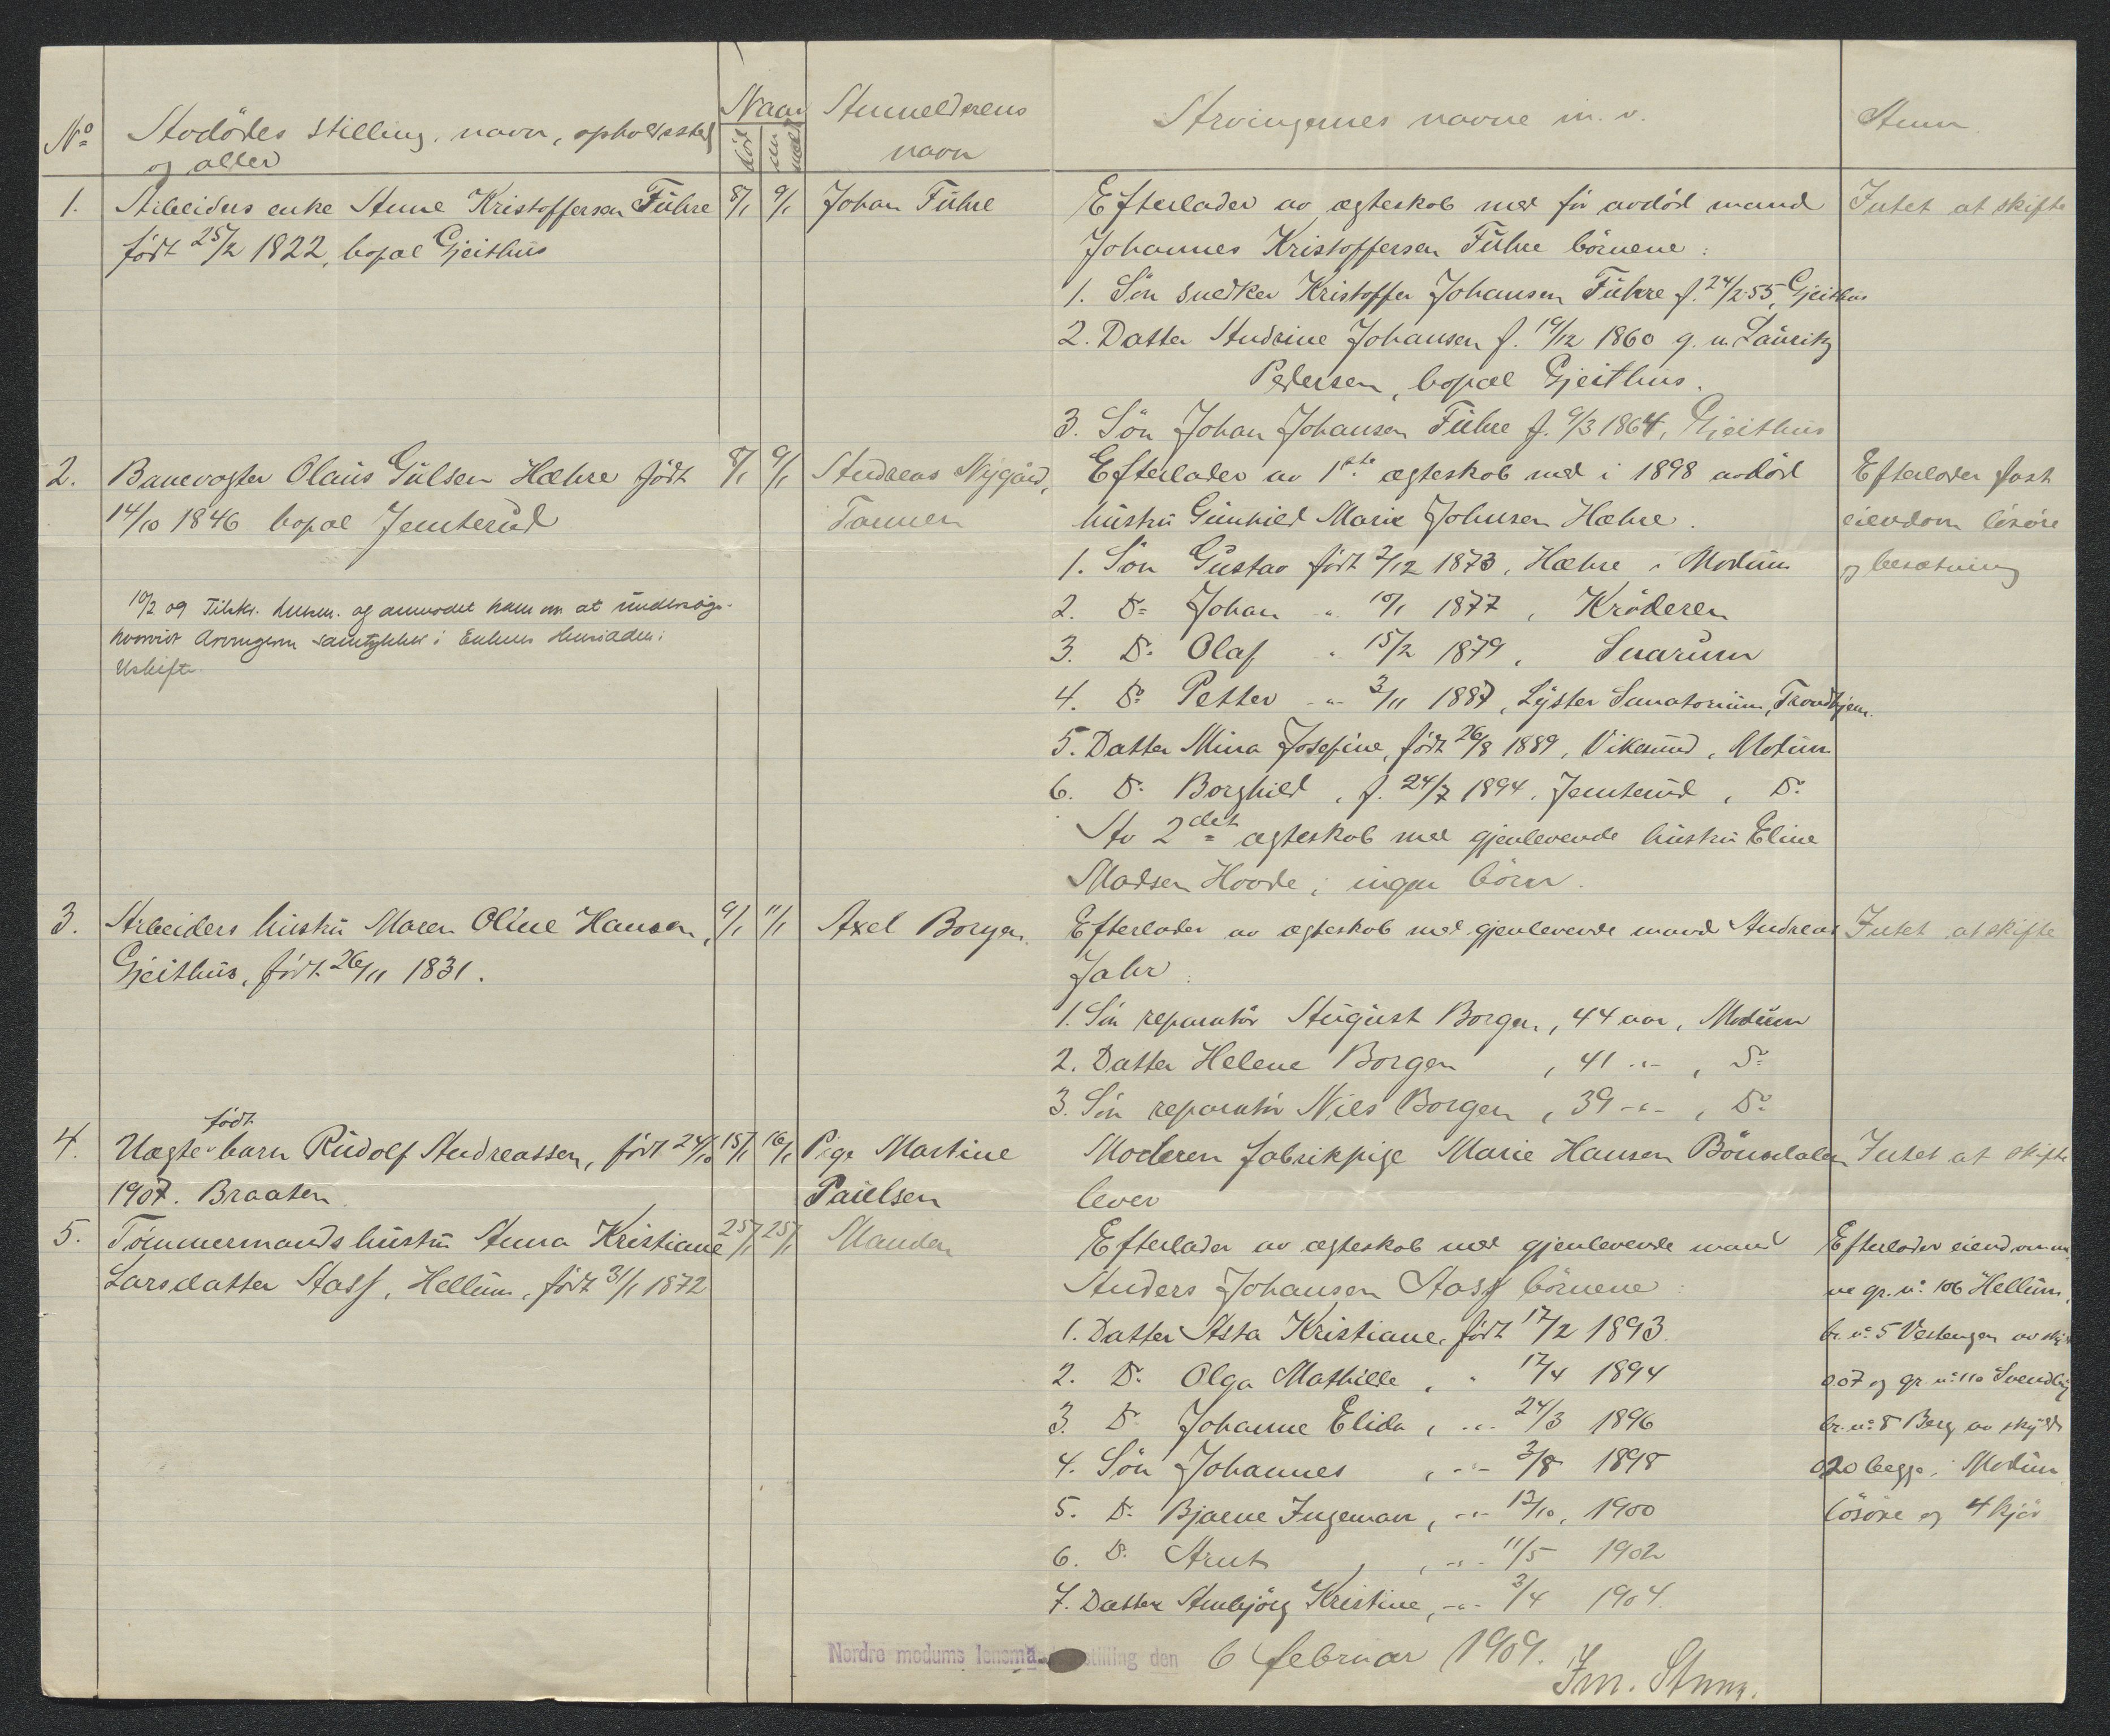 No Avdödes stilling, navn, opholdssted og alder
Naar
död
anmeldt
Anmelderens navn
Arvingernes navne m. v.
Anm.
1. Arbeiders enke Anne Kristoffersen Fuhre
født 25/2 1822, bopæl Gjeithus
8/1 9/1
Johan Fuhre
Efterlader av ægteskab med før avdöd mand
Johannes Kristoffersen Fuhre börnene:
1. Sön snedker Kristoffer Johansen Fuhre f. 24/2 55, Gjeithus
2. Datter Andrine Johansen f. 19/12 1860 g. m. Lauritz
Pedersen, bopæl Gjeithus.
3. Sön Johan Johansen Fuhre f. 9/3 1864, Gjeithus
Intet at skifte
2. Banevogter Olaus Gulsen Hæhre født
14/10 1846 bopæl Jemterud
10/2 09 Tilskr. lensm. og anmodet ham om at undersøge
hvorvidt Arvingerne samtykker i Enkens Hensidden i
Uskifte.
8/1 9/1
Andreas Nygård,
Efterlader av 1ste ægteskab med i 1898 avdöd
hustru Gunhild Marie Johnsen Hæhre.
1. Sön Gustav født 2/12 1873, Hæhre i Modum
2. Do Johan " 10/1 1877, Kröderen
3. Do Olaf " 15/2 1879, Snarum
4. Do Petter -"- 3/11 1887, Lyster Sanatorium, Trondhjem.
5. Datter Mina Josefine, født 26/8 1889, Vikesund, Modum
6. Do Borghild, f. 24/7 1894, Jemterud, Do
Av 2det ægteskab med gjenlevende hustru Eline
Madsen Hovde; ingen börn.
Efterlader fast
eiendom lösöre
og besætning
3. Arbeiders hustru Maren Oline Hansen,
Gjeithus, født 26/11 1831.
9/1 11/1
Axel Borgen.
Efterlader av ægteskab med gjenlevende mand Andreas
Jahr.
1. Sön reparatör August Borgen, 44 aar, Modum
2. Datter Helene Borgen, 41 -"-, Do
3. Sön reparatör Niels Borgen, 39 -"-, Do
Intet at skifte
4. Uægte født barn Rudolf Andreassen, født 24/10
1907. Braaten
15/1 16/1
Pige Martine
Paulsen
Moderen fabrikpige Marie Hansen Bönsdalen
lever
Intet at skifte
5. Tömmermands hustru Anna Kristiane
Larsdatter Aass, Hellum, født 31/1 1872
25/1 25/1
Manden
Efterlader av ægteskab med gjenlevende mand
Anders Johansen Aass börnene:
1. Datter Asta Kristiane, født 17/2 1893.
2. Do Olga Mathilde, " 17/4 1894
3. Do Johanne Elida, -"- 24/3 1896
4. Sön Johannes, -"- 3/8 1898
5. Do Bjarne Ingeman, -"- 12/10, 1900
6. Do Arnt, -"- 11/5 1902
7. Datter Annbjörg Kristine, -"- 3/4 1904.
Efterlader eiendomme
ne gr. no 106 Hellum,
br. no 5 Vestengen av skyld
0 07 og gr. no 110
br. no 8 Berg av skyld
0 20 begge i Modum
lösöre og 4 kjör
Nordre modums lensmandsbestilling den 6 februar 1909.